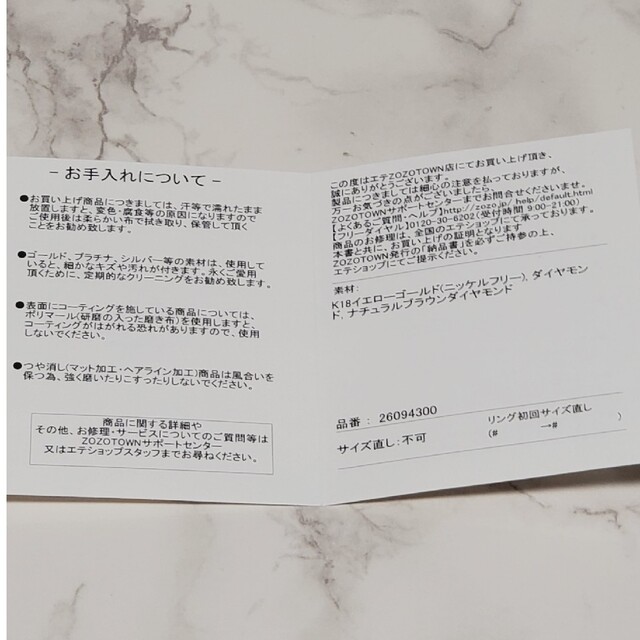 - お手入れについて -
●お買い上げ商品につきましては、汗等で濡れたまま
放置しますと、変色・腐食等の原因になりますので
ご使用後は柔らかい布で拭き取り、保管して頂く
ことをお勧め致します。
●ゴールド、プラチナ、シルバー等の素材は、使用して
いると、細かなキズや汚れが付きます。永くご愛用
頂くために、定期的なクリーニングをお勧め致します。
●表面にコーティングを施している商品については、
ポリマール(研磨の入った磨き布)を使用しますと、
コーティングがはがれる恐れがありますので、使用
しないでください。
●つや消し(マット加工・ヘアライン加工)商品は風合いを
保つ為、強く磨いたりこすったりしないでください。
商品に関する詳細や
その他、お修理・サービスについてのご質問等は
ZOZOTOWNサポートセンター
又はエテショップスタッフまでお尋ねください。
この度はエテZOZOTOWN店にてお買い上げ頂き、
誠にありがとうございます。
製品につきましては細心の注意を払っておりますが、
万一お気づきの点がございましたら、
ZOZOTOWNサポートセンターまでお問合せくださいませ。
【よくあるご質問・ヘルプ】http://zozo.jp/_help/default.html
【フリーダイヤル】0120-30-6202(受付時間 9:00-21:00)
商品のお修理は、全国のエテショップにて承っております。
本書と共に、お買い上げの証明となります
ZOZOTOWN発行の「納品書」を必ずご持参の上、
エテショップにてご提示ください。
素材:
K18イエローゴールド(ニッケルフリー), ダイヤモン
ド, ナチュラルブラウンダイヤモンド
品番 : 26094300
サイズ直し:不可
リング初回サイズ直し
(# →# )